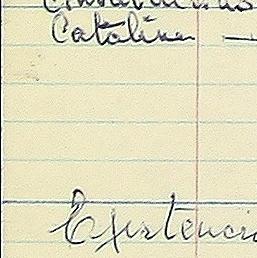 Catalina —
Existencia